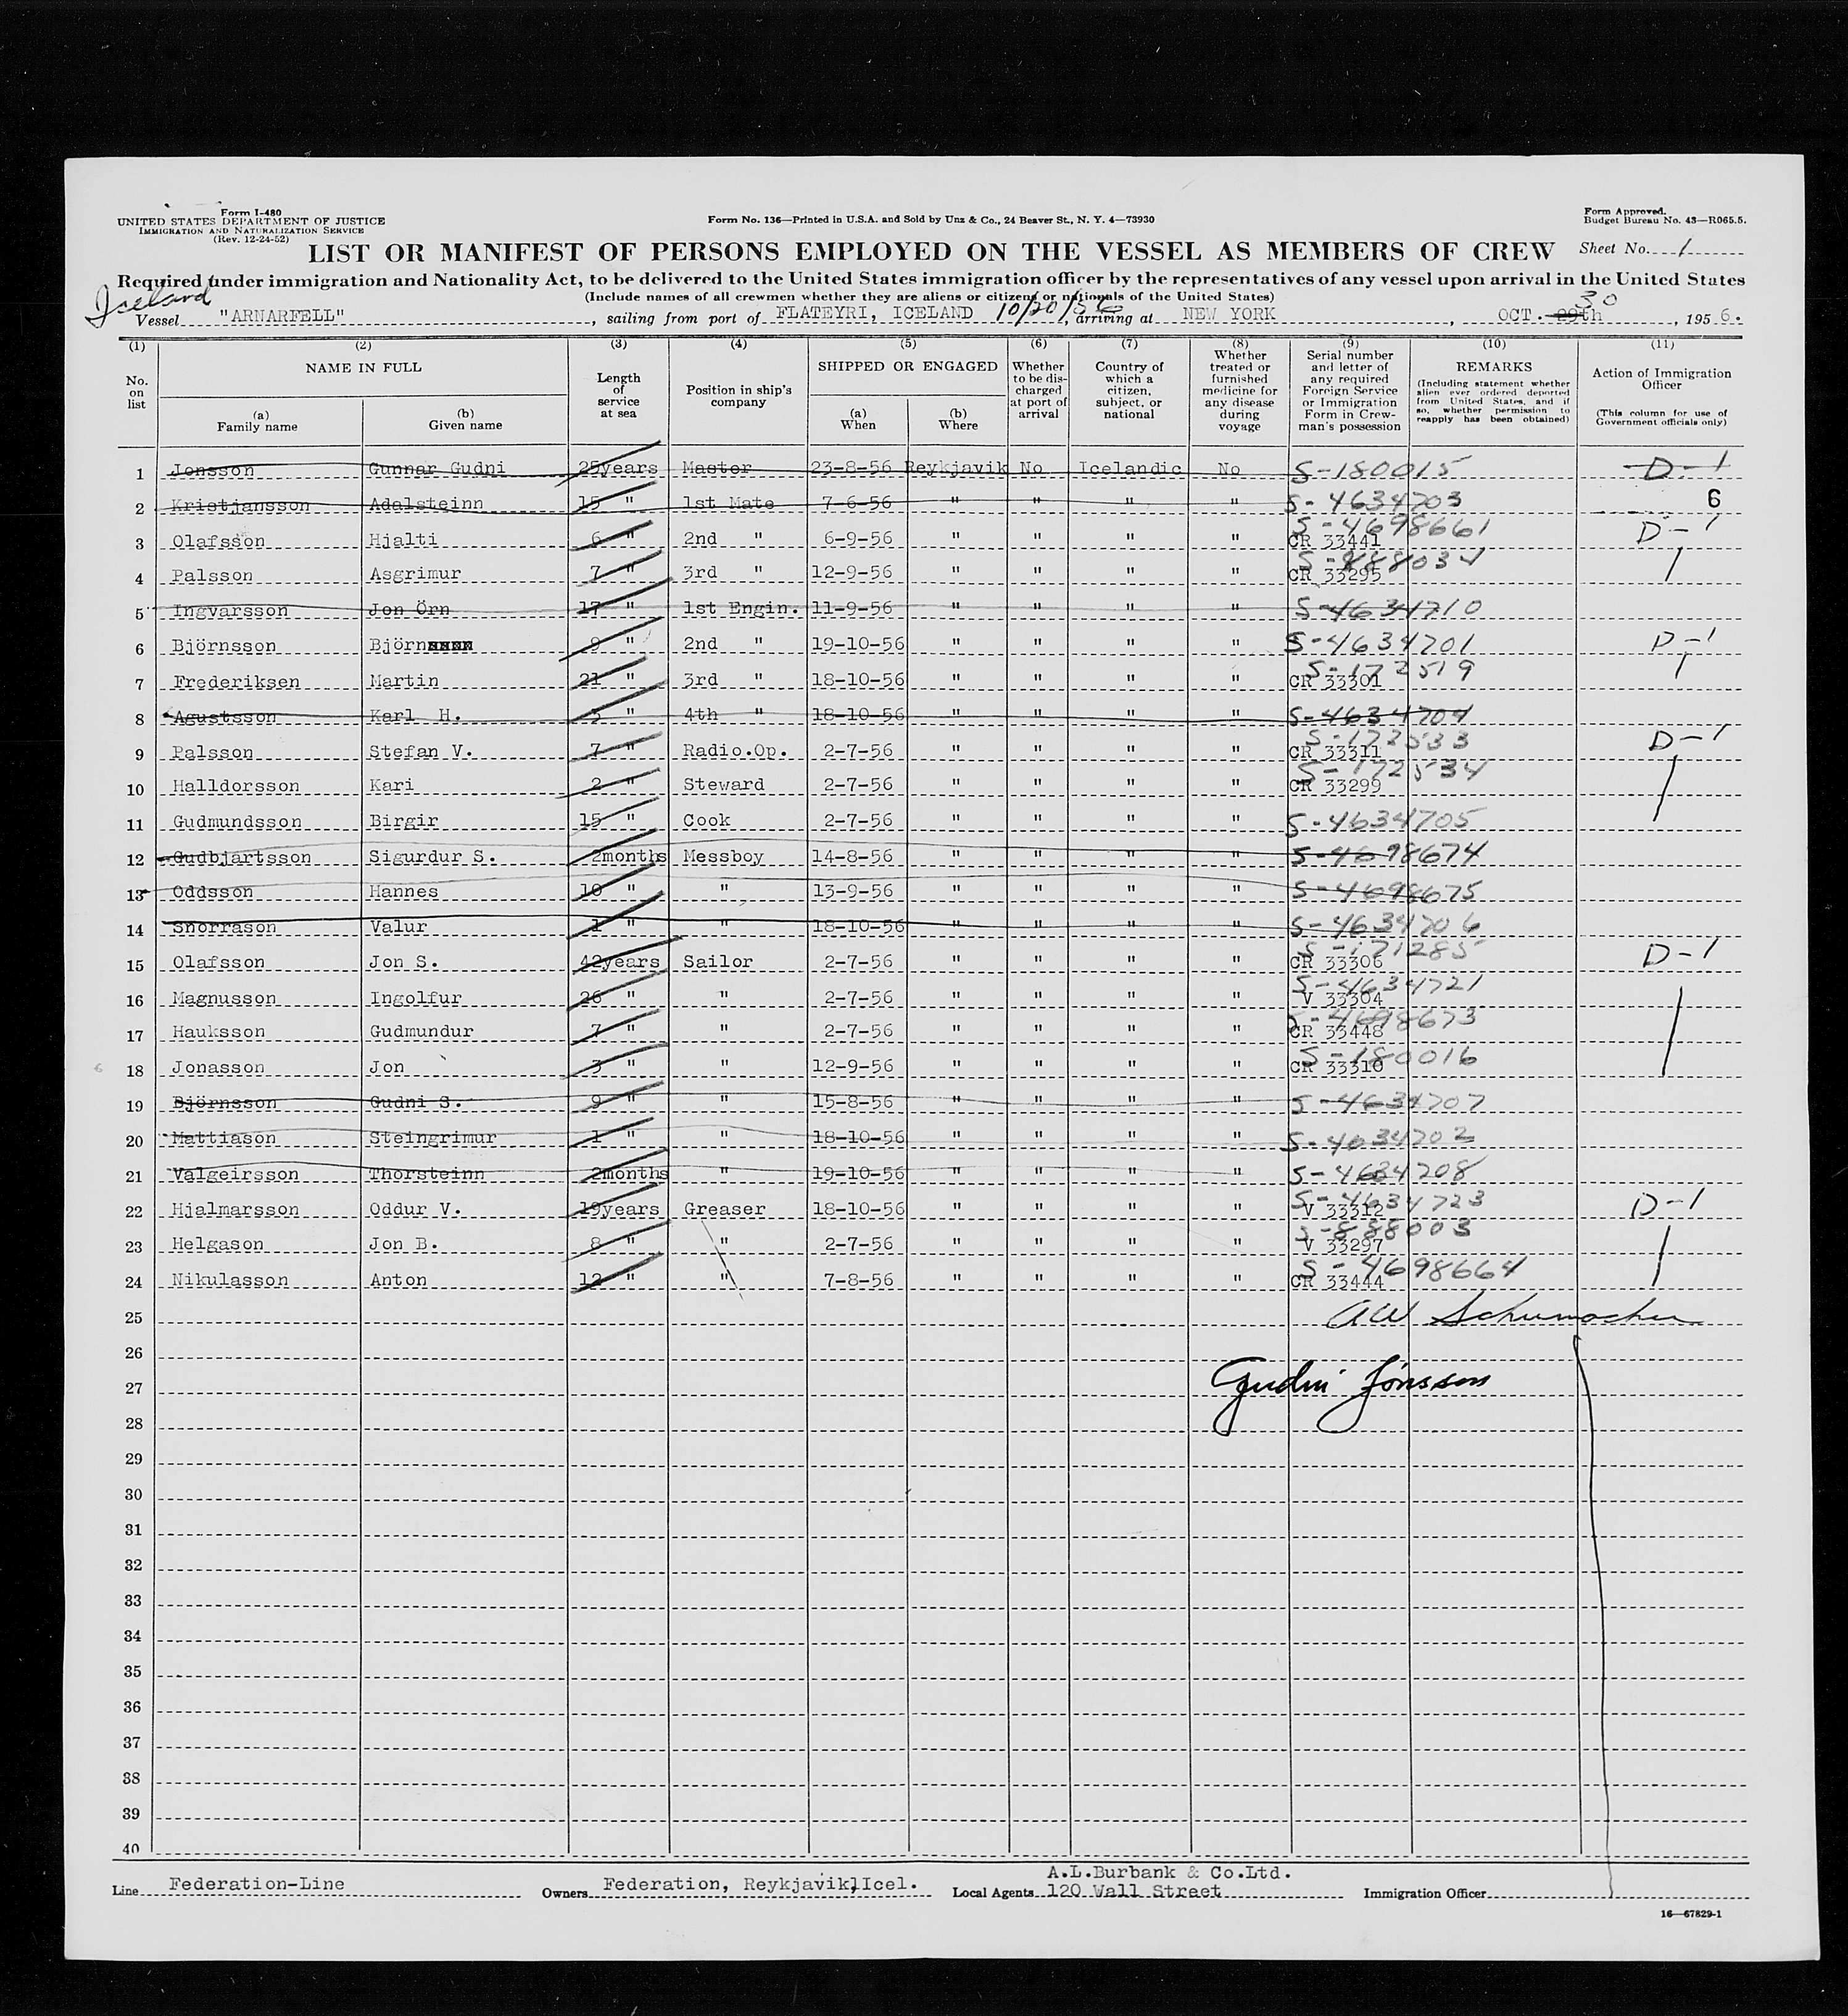 Form I-480
UNITED STATES DEPARTMENT OF JUSTICE
IMMIGRATION AND NATURALIZATION SERVICE
(Rev. 12-24-52)
Form No. 136—Printed in U.S.A. and Sold by Unz & Co., 24 Beaver St., N. Y. 4—73930
Form Approved.
Budget Bureau No. 43—R065.5.
LIST OR MANIFEST OF PERSONS EMPLOYED ON THE VESSEL AS MEMBERS OF CREW
Sheet No. 1
Required under immigration and Nationality Act, to be delivered to the United States immigration officer by the representatives of any vessel upon arrival in the United States
(Include names of all crewmen whether they are aliens or citizens or nationals of the United States)
Iceland
Vessel "ARNARFELL", sailing from port of FLATEYRI, ICELAND 10/20/56, arriving at NEW YORK, OCT. 29th 30, 1956.
(1) (2) (3) (4) (5) (6) (7) (8) (9) (10) (11)
No. on list
NAME IN FULL
(a) Family name
(b) Given name
Length of service at sea
Position in ship's company
SHIPPED OR ENGAGED
(a) When
(b) Where
Whether to be discharged at port of arrival
Country of which a citizen, subject, or national
Whether treated or furnished medicine for any disease during voyage
Serial number and letter of any required Foreign Service or Immigration Form in Crewman's possession
REMARKS
(Including statement whether alien ever ordered deported from United States, and if so, whether permission to reapply has been obtained)
Action of Immigration Officer
(This column for use of Government officials only)
1 Jonsson Gunnar Gudni 25years Master 23-8-56 Reykjavik No Icelandic No S-180015 D-1
2 Kristjansson Adalsteinn 15 " 1st Mate 7-6-56 " " " " S-4634703 6
3 Olafsson Hjalti 6 " 2nd " 6-9-56 " " " " S-4698661 CR 33441 D-1
4 Palsson Asgrimur 7 " 3rd " 12-9-56 " " " " CR 33295
5 Ingvarsson Jon Örn 17 " 1st Engin. 11-9-56 " " " " S-4634710
6 Björnsson Björn 9 " 2nd " 19-10-56 " " " " S-4634701 D-1
7 Frederiksen Martin 21 " 3rd " 18-10-56 " " " " S-172519 CR 33301
8 Agustsson Karl H. 3 " 4th " 18-10-56 " " " " S-4634704
9 Palsson Stefan V. 7 " Radio.Op. 2-7-56 " " " " S-172533 CR 33311 D-1
10 Halldorsson Kari 2 " Steward 2-7-56 " " " " S-172534 CR 33299
11 Gudmundsson Birgir 15 " Cook 2-7-56 " " " " S-4634705
12 Gudbjartsson Sigurdur S. 2months Messboy 14-8-56 " " " " S-4698674
13 Oddsson Hannes 10 " " 13-9-56 " " " " S-4698675
14 Snorrason Valur 1 " " 18-10-56 " " " " S-4634706
15 Olafsson Jon S. 42years Sailor 2-7-56 " " " " S-171285 CR 33306 D-1
16 Magnusson Ingolfur 26 " " 2-7-56 " " " " S-4634721 V 33304
17 Hauksson Gudmundur 7 " " 2-7-56 " " " " S-4698673 CR 33448
18 Jonasson Jon 3 " " 12-9-56 " " " " S-180016 CR 33310
19 Björnsson Gudni S. 9 " " 15-8-56 " " " " S-4634707
20 Mattiason Steingrimur 1 " " 18-10-56 " " " " S-4634702
21 Valgeirsson Thorsteinn 2months " 19-10-56 " " " " S-4634708
22 Hjalmarsson Oddur V. 19years Greaser 18-10-56 " " " " S-4634723 V 33312 D-1
23 Helgason Jon B. 8 " " 2-7-56 " " " " S-888003 V 33297
24 Nikulasson Anton 12 " " 7-8-56 " " " " S-4698664 CR 33444
25 AW Schumacher
26
27 Gudni Jónsson
28
29
30
31
32
33
34
35
36
37
38
39
40
Line Federation-Line Owners Federation, Reykjavik, Icel. Local Agents A.L.Burbank & Co.Ltd. 120 Wall Street Immigration Officer
16—67829-1